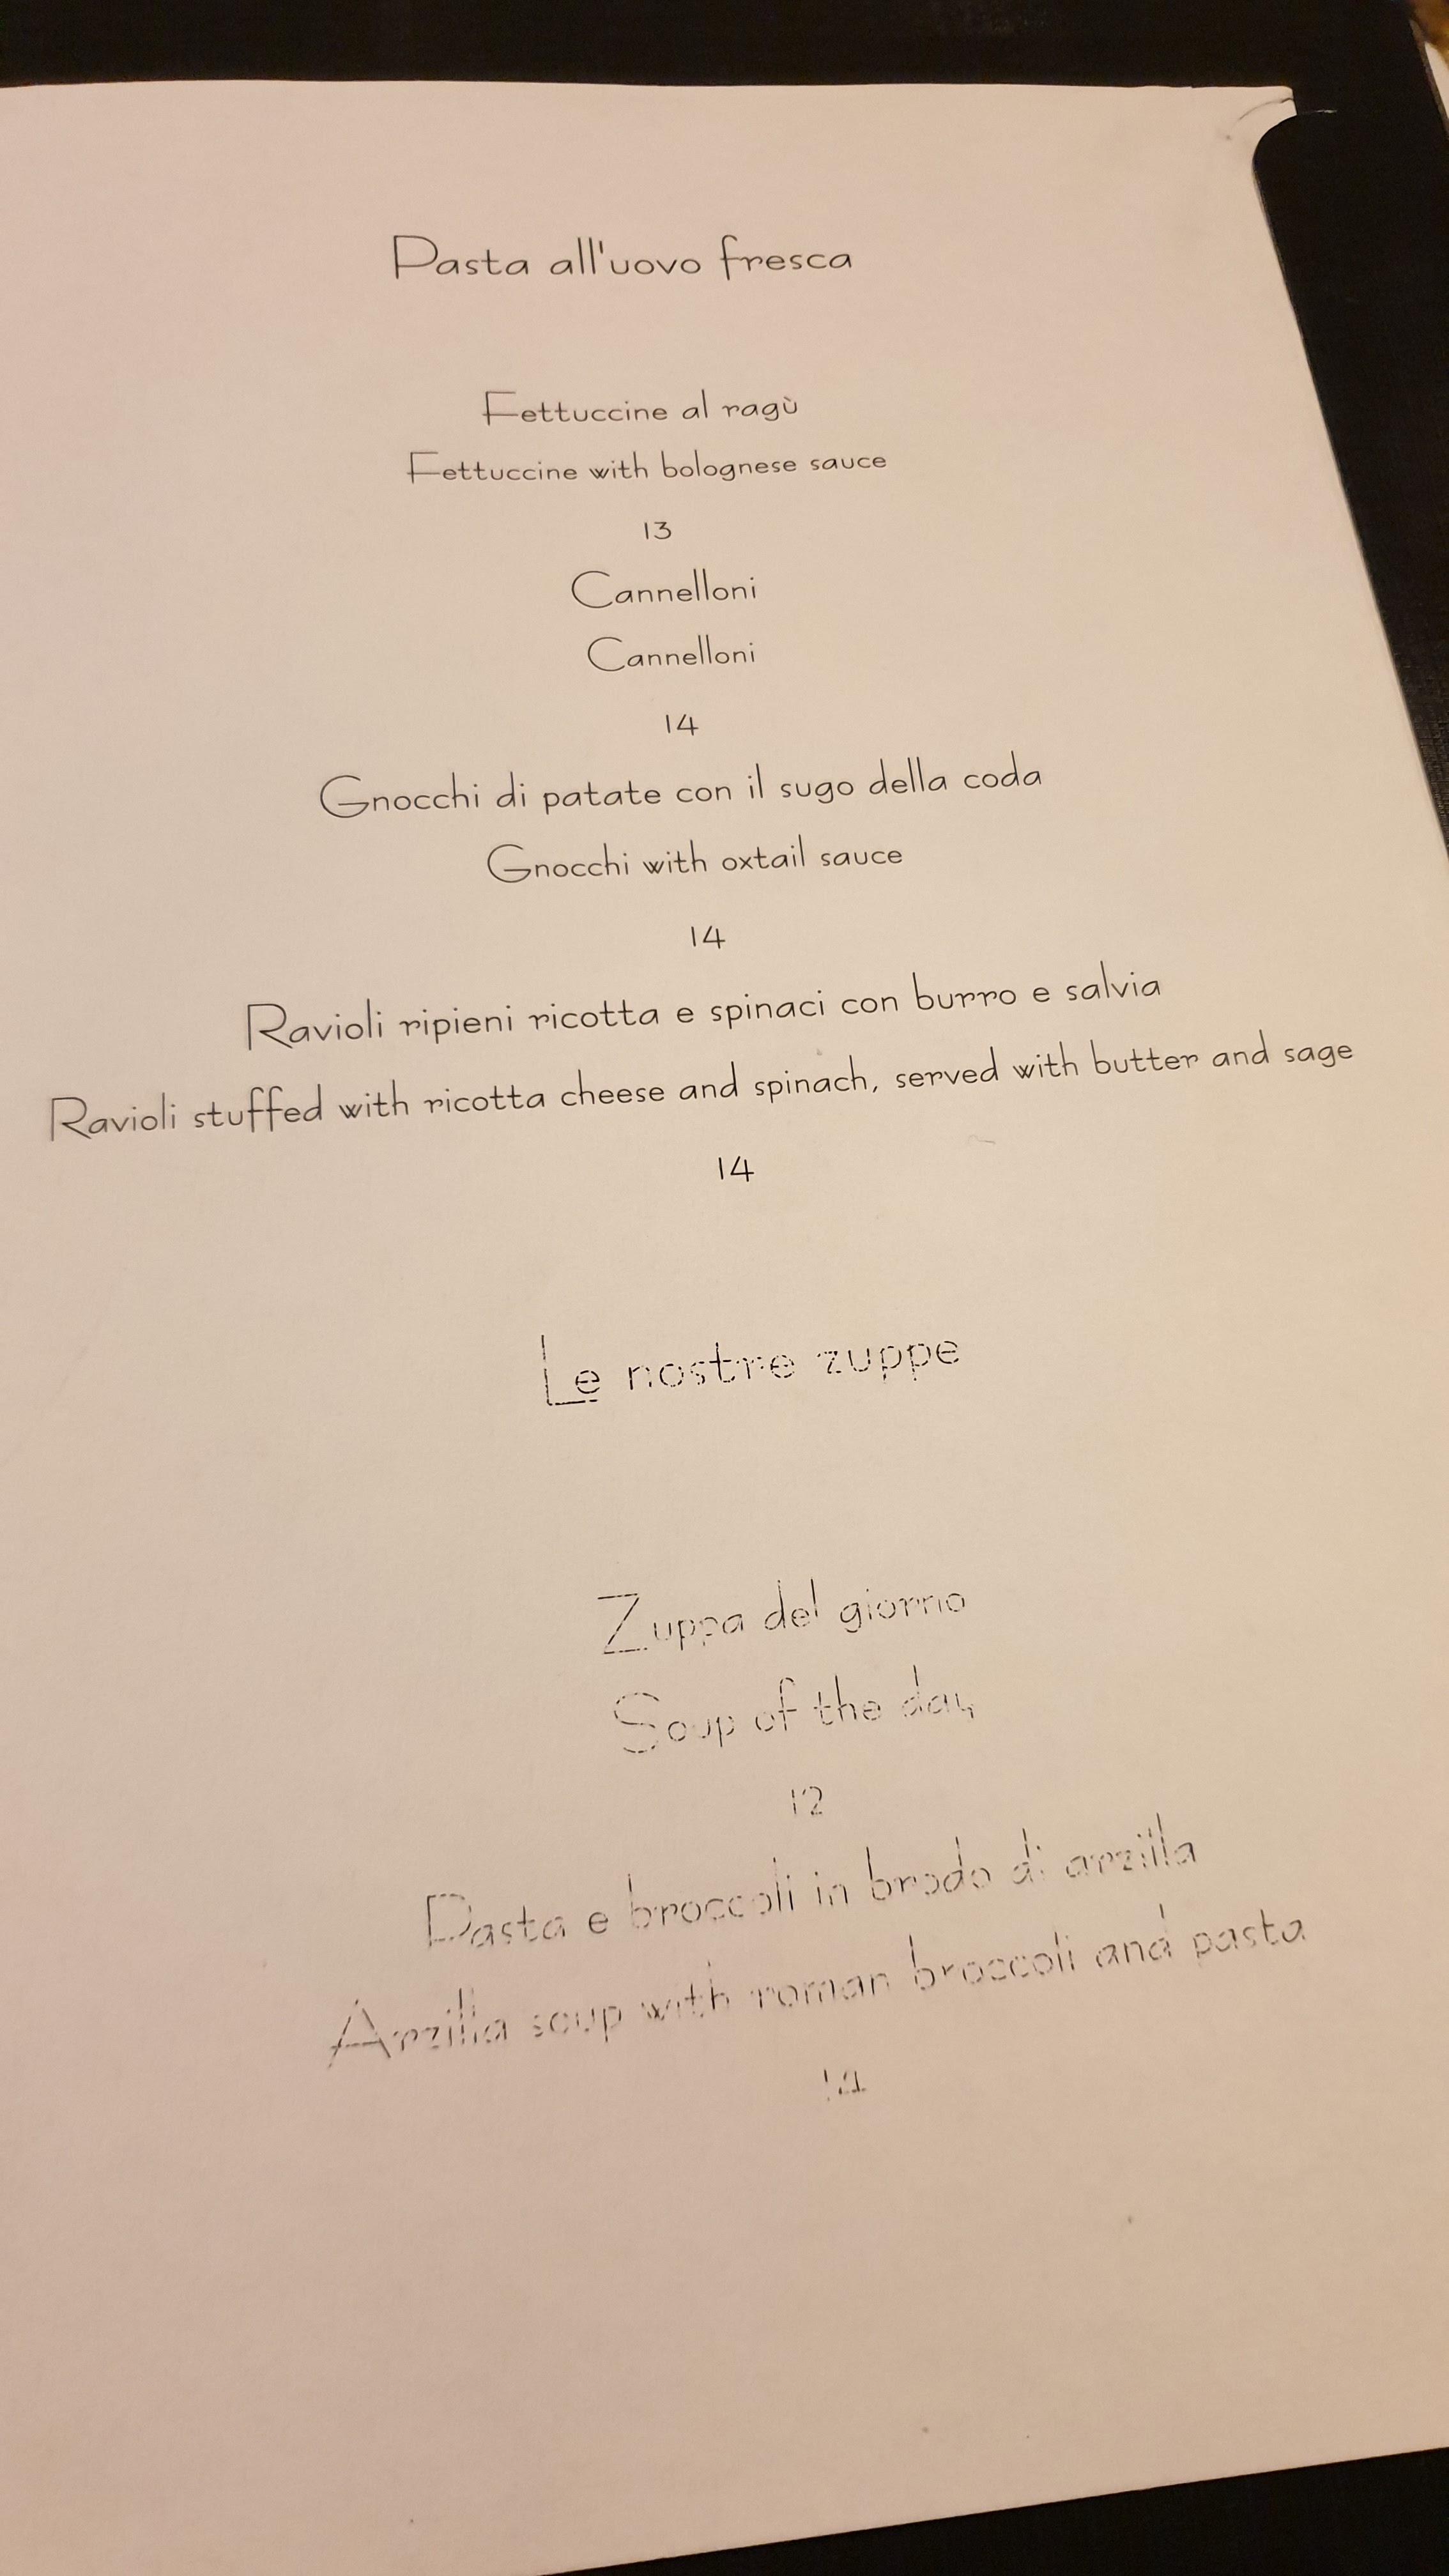 Pasta all'uovo fresca
Fettuccine al ragù
Fettuccine with bolognese sauce
13
Cannelloni
Cannelloni
14
Gnocchi di patate con il sugo della coda
Gnocchi with oxtail sauce
14
Ravioli ripieni ricotta e spinaci con burro e salvia
Ravioli stuffed with ricotta cheese and spinach, served with butter and sage
14
Le nostre zuppe
Zuppa del giorno
Soup of the day
12
Pasta e broccoli in brodo di arzilla
Arzilla soup with roman broccoli and pasta